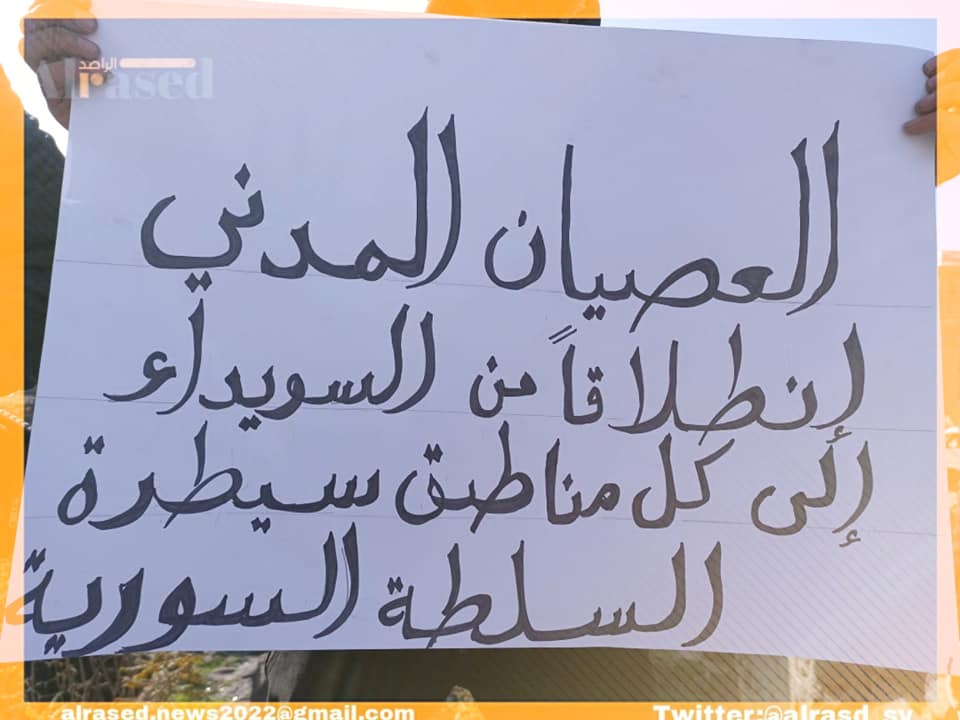 الراصد
Alrased
العصيان المدني
إنطلاقاً من السويداء
إلى كل مناطق سيطرة
السلطة السورية
alrased.news2022@gmail.com
Twitter:@alrasd_sy